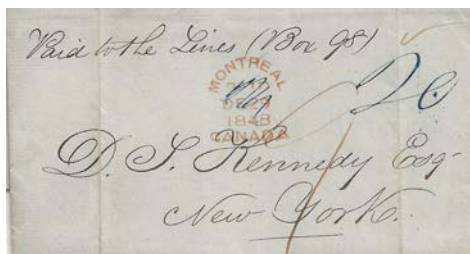 Paid to the Lines (Box 98)
MONTREAL
DE 29
1848
CANADA
D. S. Kennedy Esq
New York.